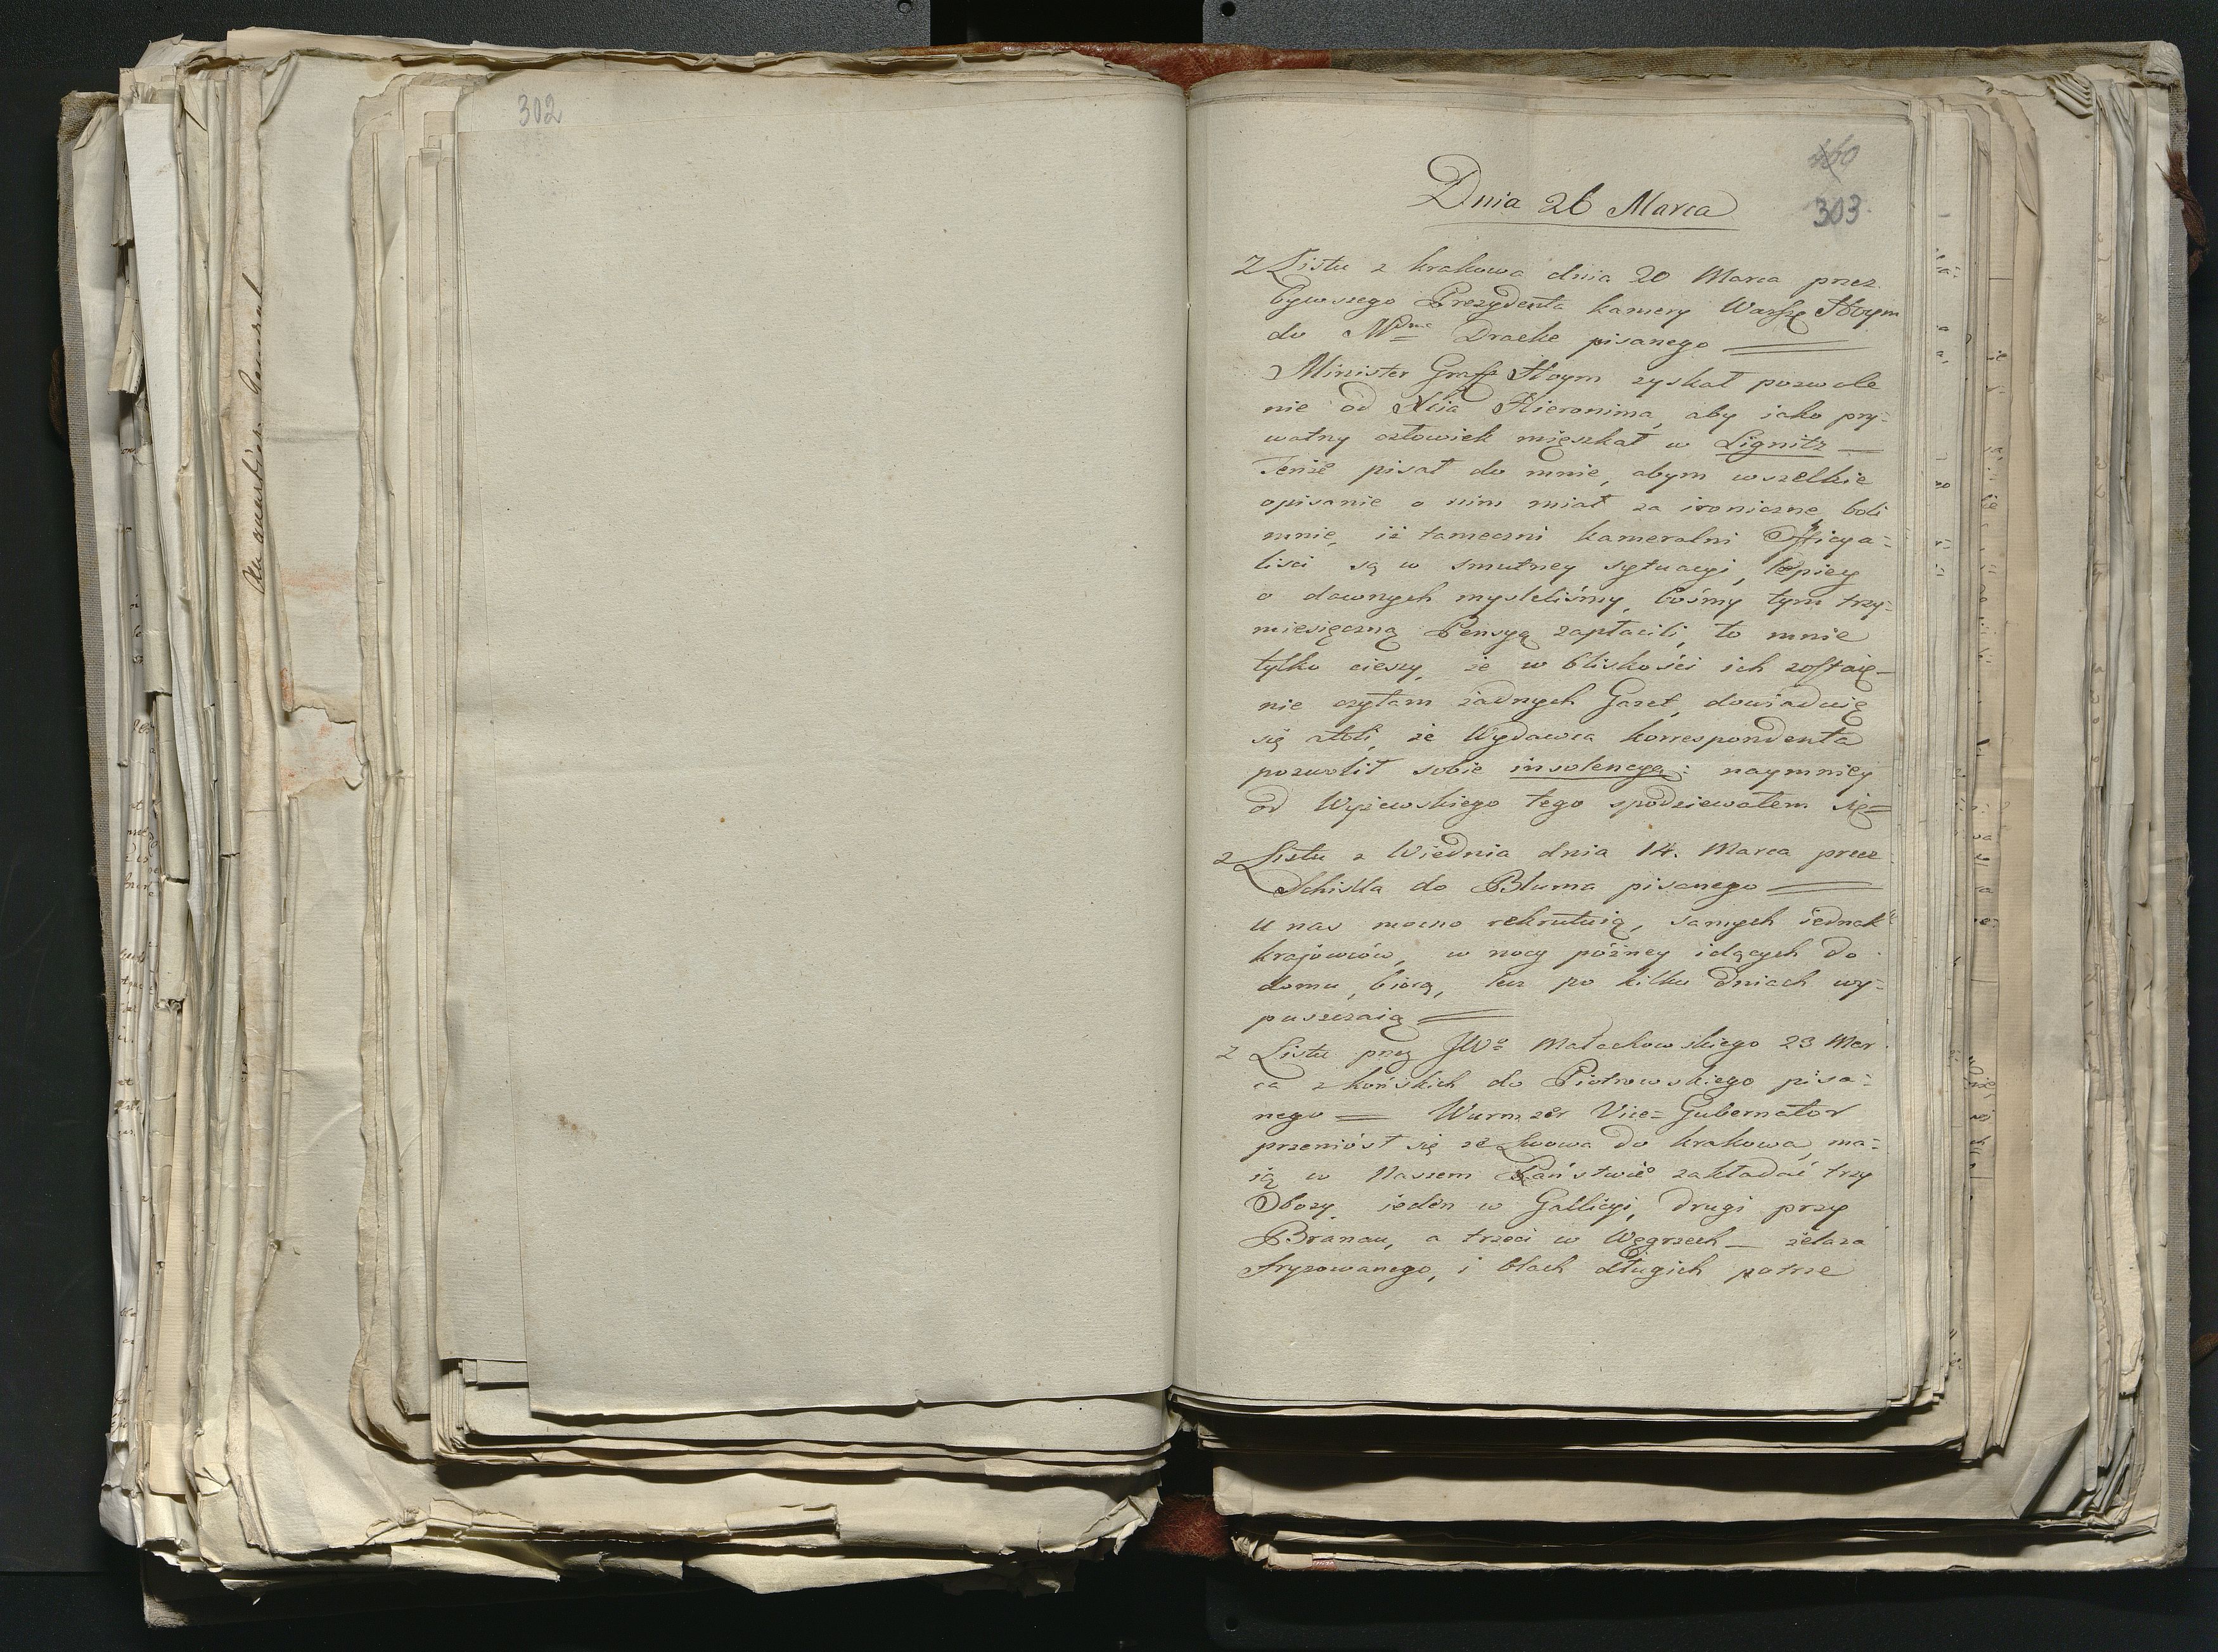 302
303
Dnia 26 Marca
Z Listu z Krakowa dnia 20 Marca przez
bywszego Prezydenta kamery Warsz Hoym
do Mdme Dracke pisanego
Minister Graff Hoym zyskał pozwole
nie od Xcia Hieronima, aby iako pry-
watny człowiek mięszkał w Lignitz —
Tenże pisał do mnie, abym wszelkie
opisanie o nim miał za ironiczne, boli
mnie, iż tameczni kameralni Officya-
lisci są w smutney sytuacyi, lepiey
o dawnych mysleliśmy, bośmy tym trzy-
miesięczną Pensyą zapłacili, to mnie
tylko cieszy, że w bliskości ich zostaię —
nie czytam żadnych Gazet, dowiaduię
się atoli, że Wydawca korrespondenta
pozwolił sobie insolencyą: naymniey
od Wyżewskiego tego spodziewałem się =
Z Listu z Wiednia dnia 14. Marca przez
do Bluma pisanego
U nas mocno rekrutuią, samych iednak
krajowców, w nocy późney idących do
domu, biorą, lecz po kilku dniach wy-
puszczaią
Z Listu przez JWo Małachowskiego 23 Mar
ca z Końskich do Piotrowskiego pisa-
nego = Wurmzer Vice=Gubernator
przeniósł się ze Lwowa do Krakowa, ma-
ią w Naszem Państwie zakładać trzy
Obozy, ieden w Gallicyi, drugi przy
Branau, a trzeci w Węgrzech — żelaza
fryzowanego, i blach długich potrze